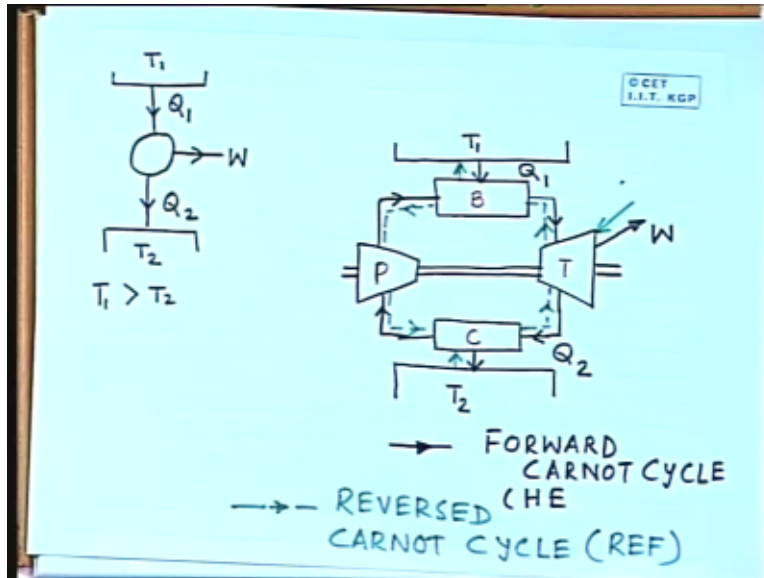 T1
Q1
W
Q2
T2
T1 > T2
© CET
I.I.T. KGP
T1
Q1
B
W
P
T
C
Q2
T2
FORWARD
CARNOT CYCLE
CHE
REVERSED
CARNOT CYCLE (REF)